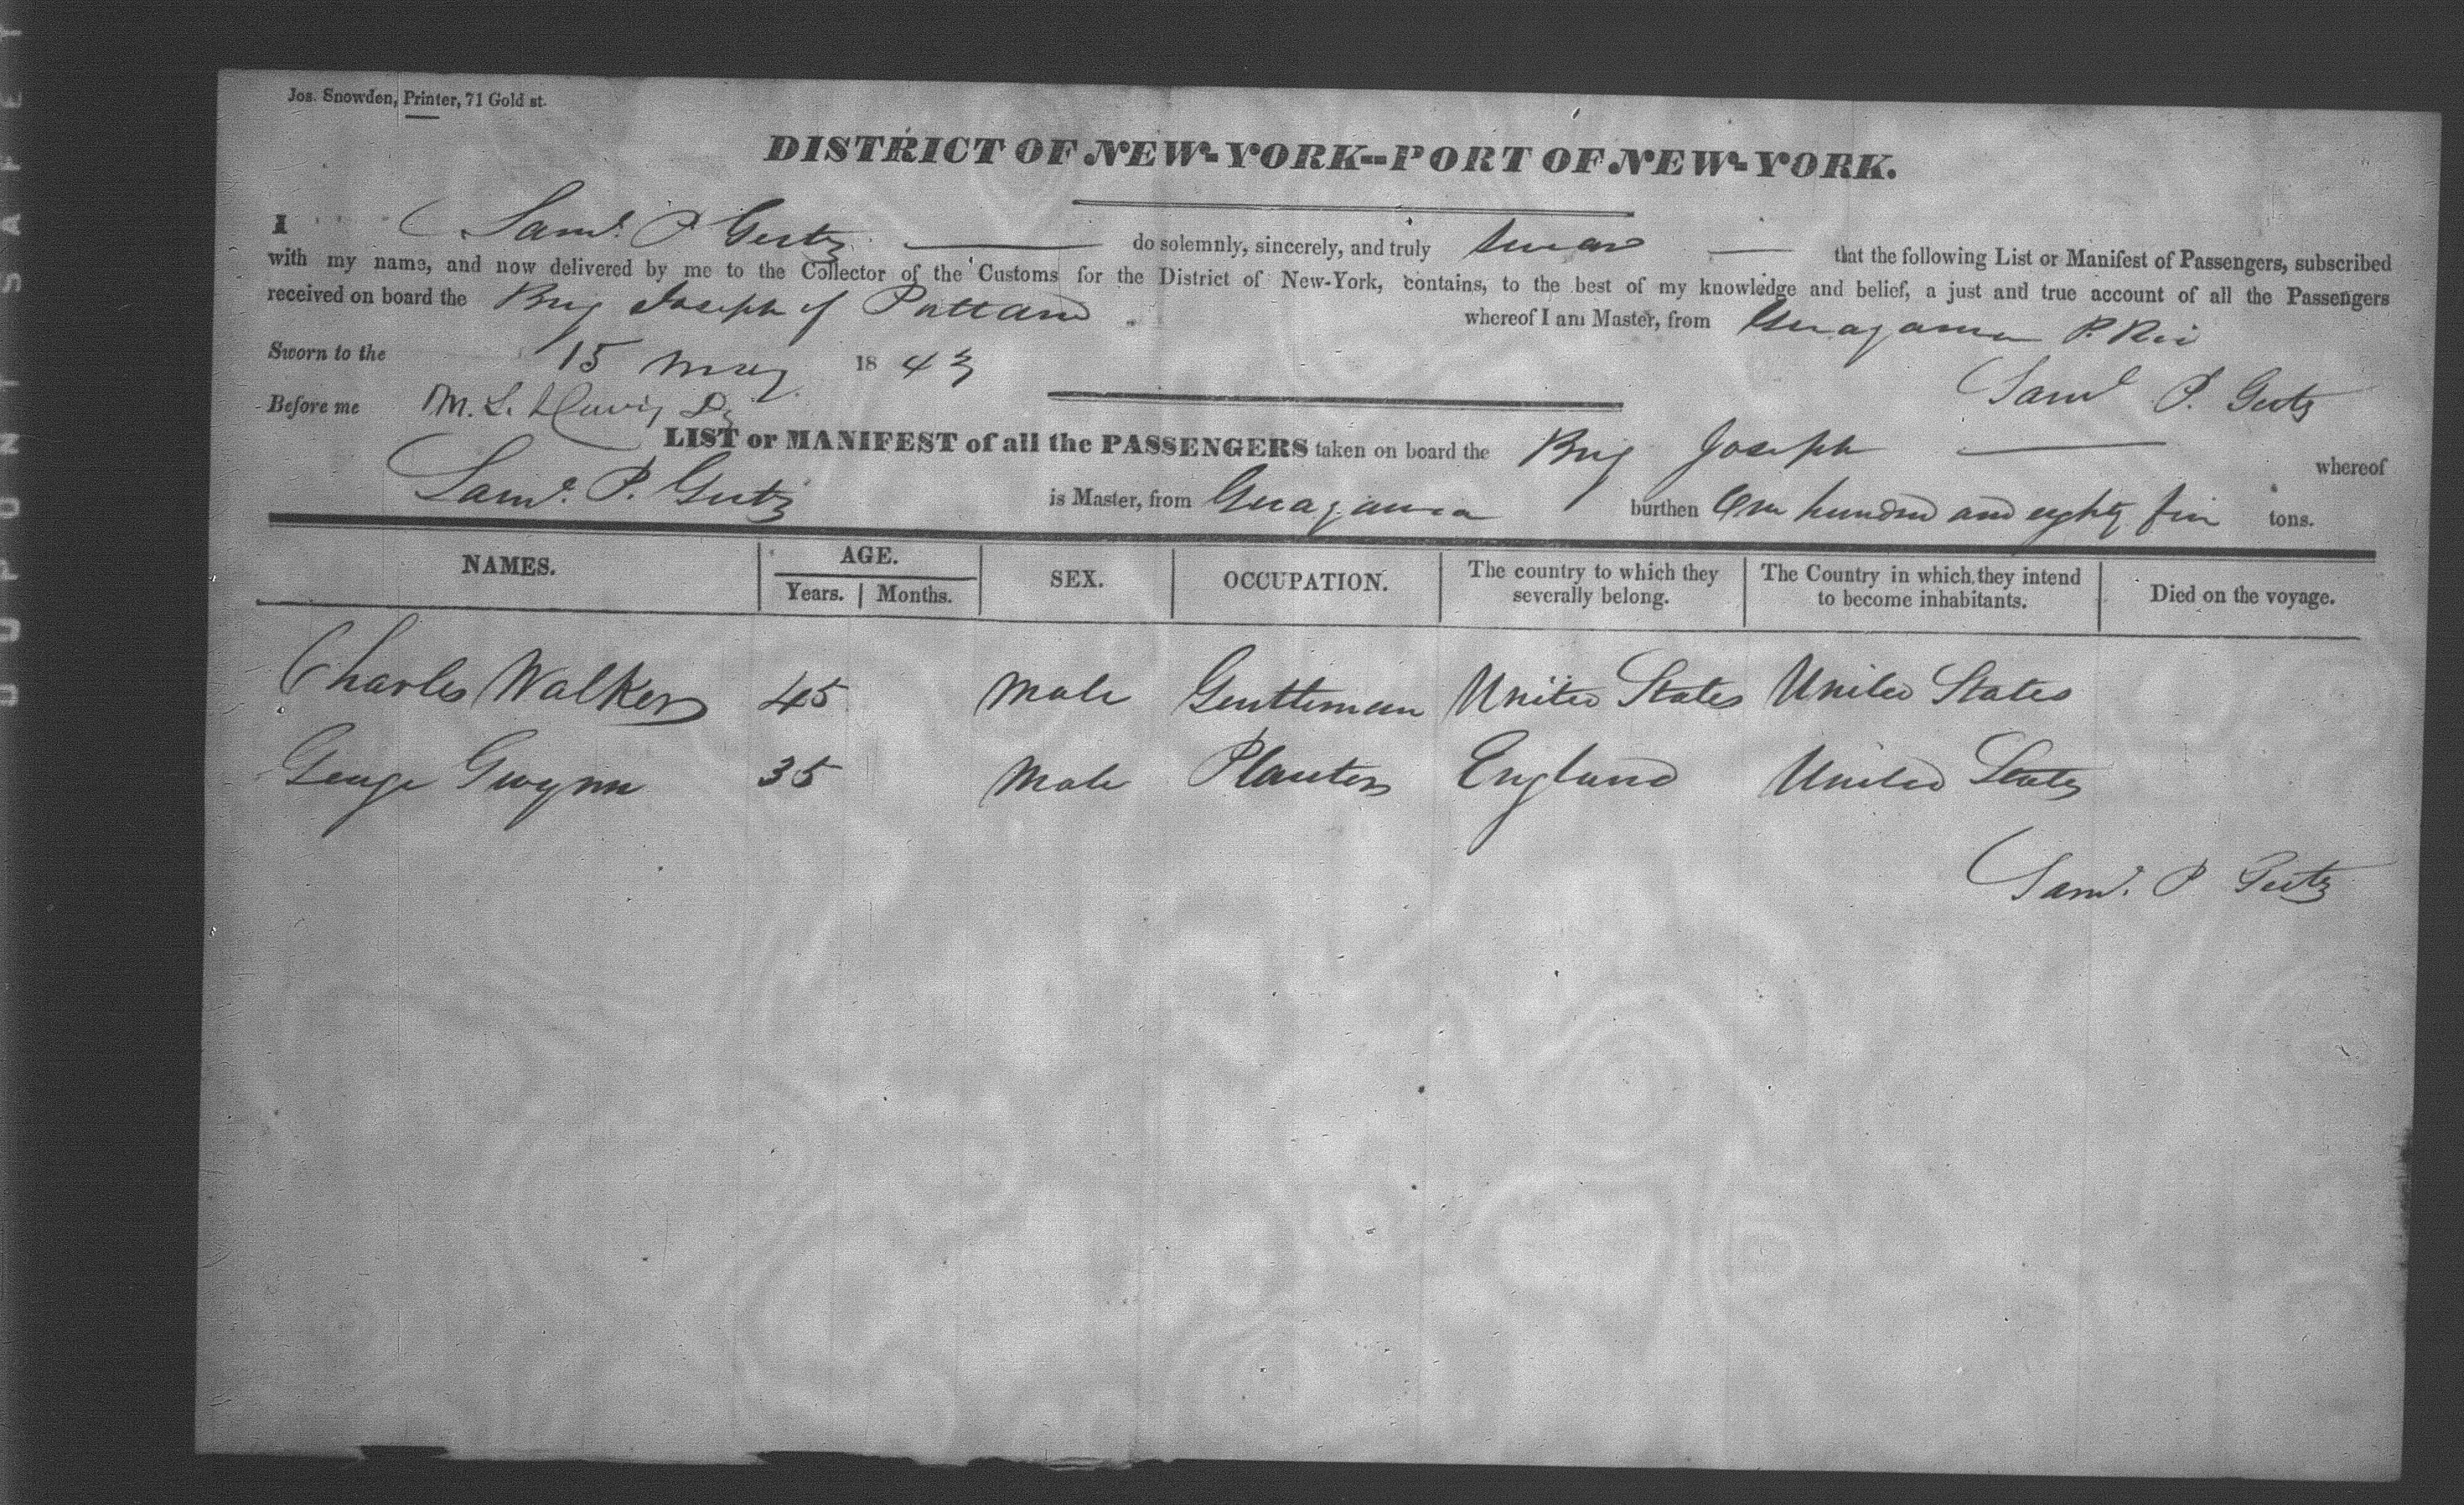 Jos. Snowden, Printer, 71 Gold st.
DISTRICT OF NEW-YORK--PORT OF NEW-YORK.
I Saml. P Gertz do solemnly, sincerely, and truly swear that the following List or Manifest of Passengers, subscribed
with my name, and now delivered by me to the Collector of the Customs for the District of New-York, contains, to the best of my knowledge and belief, a just and true account of all the Passengers
received on board the Brig Joseph of Portland whereof I am Master, from Guayama P. Rico
Sworn to the 15 May 1843
Saml P. Gertz
Before me M. L. Davis
LIST or MANIFEST of all the PASSENGERS taken on board the Brig Joseph whereof
Saml. P. Gertz is Master, from Guayama burthen One hundred and eighty five tons.
NAMES. AGE. SEX. OCCUPATION. The country to which they severally belong. The Country in which they intend to become inhabitants. Died on the voyage.
Years. Months.
Charles Walker 45 male Gentleman United States United States
George Gwynn 35 Male Planter England United States
Saml. P Gertz
DUPONT SAFET